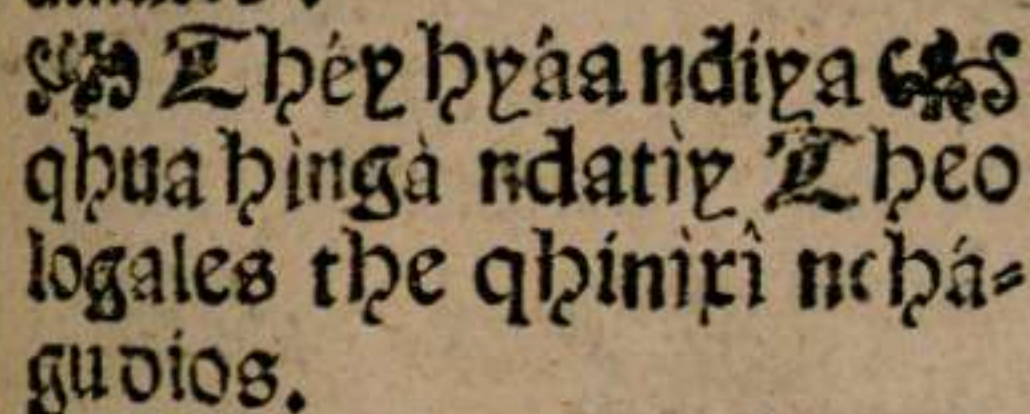 Théy hyáa ndíya
qhua hìngà ndatìy Theo
logales the qhínixî nchá=
gudios.